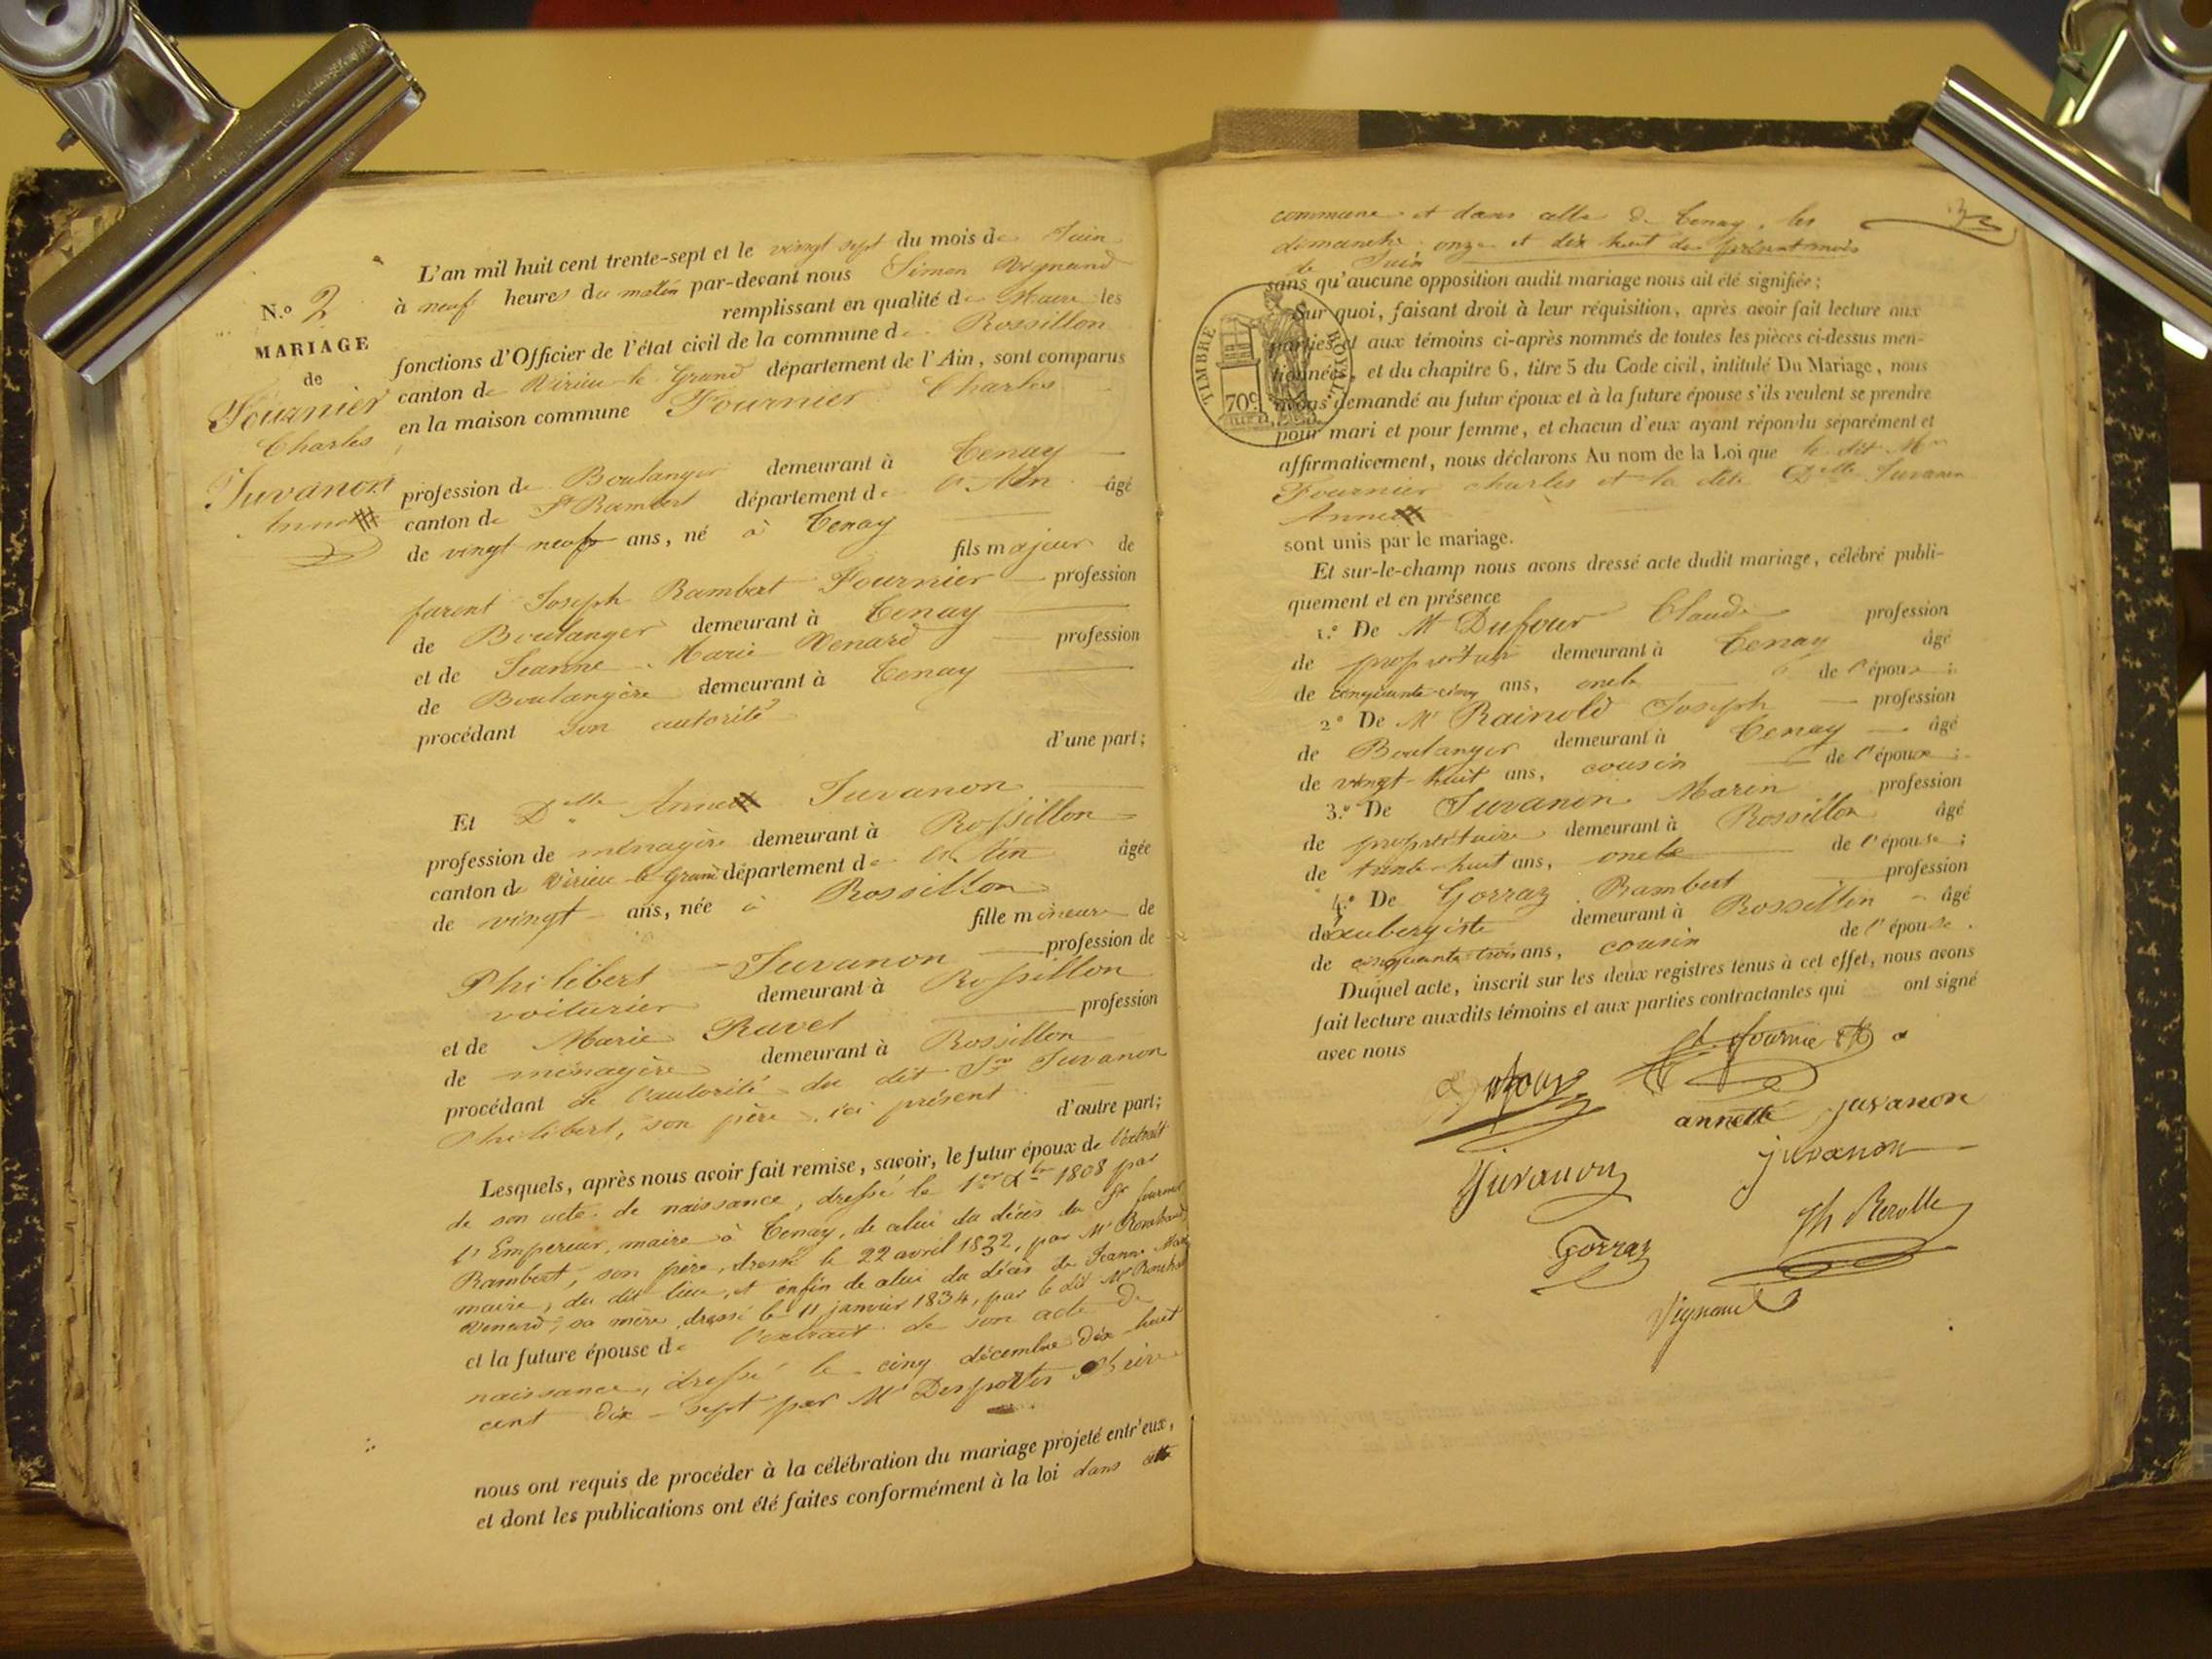 L'an mil huit cent trente-sept et le vingt sept du mois de Juin
à neuf heures du matin par-devant nous Simon Vignand
remplissant en qualité de Maire les
fonctions d'Officier de l'état civil de la commune de Rossillon
canton de Virieu-le-Grand département de l'Ain, sont comparus
en la maison commune Fournier Charles
N.º 2
MARIAGE
de
Fournier
Charles
Juvanon
profession de Boulanger demeurant à Tenay
canton de St Rambert département de l'Ain âgé
de vingt neuf ans, né à Tenay
fils majeur de
Joseph Rambert Fournier profession
de Boulanger demeurant à Tenay
et de Jeanne Marie Venard profession
de Boulangère demeurant à Tenay
procédant son autorité
d'une part;
Et Delle Juvanon
profession de ménagère demeurant à Rossillon
canton de Virieu-le-Grand département de l'Ain âgée
de vingt ans, née à Rossillon
fille mineure de
Philibert Juvanon profession de
voiturier demeurant à Rossillon
et de Marie Ravet profession
de ménagère demeurant à Rossillon
procédant de l'autorité du dit Sr Juvanon
Philibert, son père, ici présent
d'autre part;
Lesquels, après nous avoir fait remise, savoir, le futur époux de l'extrait
de son acte de naissance, dressé le 1er Xbre 1808 par
l'Empereur, maire à Tenay, de celui du décès du Sr fournier
Rambert, son père, dressé le 22 avril 1832, par Mr
maire, du dit lieu, et enfin de celui du décès de Jeanne
Venard, sa mère, dressé le 11 janvier 1834, par le dit Mr
et la future épouse de l'extrait de son acte de
naissance, dressé le cinq décembre dix huit
cent dix-sept par Mr Desportes
nous ont requis de procéder à la célébration du mariage projeté entr'eux,
et dont les publications ont été faites conformément à la loi dans cette
commune et dans celle de Tenay, les
dimanche onze et dix huit du présent mois
de Juin
sans qu'aucune opposition audit mariage nous ait été signifiée;
TIMBRE ROYAL.
70c
Sur quoi, faisant droit à leur réquisition, après avoir fait lecture aux
parties et aux témoins ci-après nommés de toutes les pièces ci-dessus men-
tionnées, et du chapitre 6, titre 5 du Code civil, intitulé Du Mariage, nous
avons demandé au futur époux et à la future épouse s'ils veulent se prendre
pour mari et pour femme, et chacun d'eux ayant répondu séparément et
affirmativement, nous déclarons Au nom de la Loi que le dit Mr
Fournier charles et la dite Delle Juvanon
sont unis par le mariage.
Et sur-le-champ nous avons dressé acte dudit mariage, célébré publi-
quement et en présence
1.º De Mr Dufour Claude profession
de propriétaire demeurant à Tenay âgé
de cinquante-cinq ans, oncle de l'époux;
2º De Mr Rainold Joseph profession
de Boulanger demeurant à Tenay âgé
de vingt-huit ans, cousin de l'époux;
3.º De Juvanon Marin profession
de propriétaire demeurant à Rossillon âgé
de trente-huit ans, oncle de l'épouse;
4.º De Gorraz Rambert profession
de aubergiste demeurant à Rossillon âgé
de cinquante trois ans, cousin de l'épouse.
Duquel acte, inscrit sur les deux registres tenus à cet effet, nous avons
fait lecture auxdits témoins et aux parties contractantes qui ont signé
avec nous
annette juvanon
juvanon
Juvanon
Gorraz